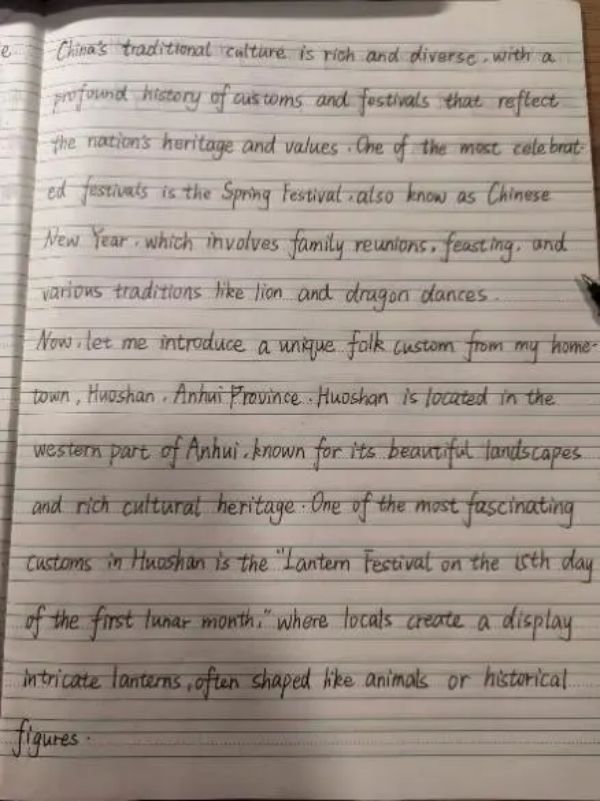 e
China's traditional culture is rich and diverse, with a
profound history of customs and festivals that reflect
the nation's heritage and values. One of the most celebrat-
ed festivals is the Spring Festival, also know as Chinese
New Year, which involves family reunions, feasting, and
various traditions like lion and dragon dances.
Now, let me introduce a unique folk custom from my home-
town, Huoshan, Anhui Province. Huoshan is located in the
western part of Anhui, known for its beautiful landscapes
and rich cultural heritage. One of the most fascinating
customs in Huoshan is the "Lantern Festival on the 15th day
of the first lunar month," where locals create a display
intricate lanterns, often shaped like animals or historical
figures.